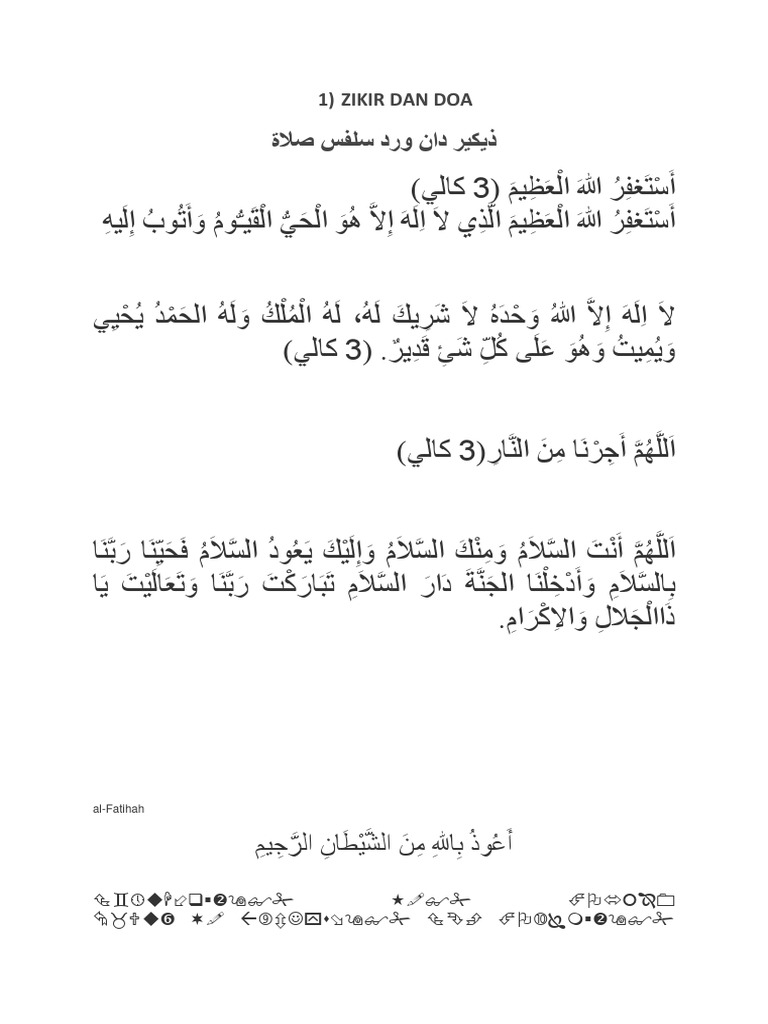 1) ZIKIR DAN DOA
ذيكير دان ورد سلفس صلاة
أَسْتَغفِرُ اللهَ الْعَظِيمَ (3 كالي)
أَسْتَغفِرُ اللهَ الْعَظِيمَ الَّذِي لاَ اِلَهَ إِلاَّ هُوَ الْحَيُّ الْقَيُّـومُ وَأَتُوبُ إِلَيهِ
لاَ اِلَهَ إِلاَّ اللهُ وَحْدَهُ لاَ شَرِيكَ لَهُ، لَهُ الْمُلْكُ وَلَهُ الحَمْدُ يُحْيِي
وَيُمِيتُ وَهُوَ عَلَى كُلِّ شَئِ قَدِيرٌ. (3 كالي)
اَللَّهُمَّ أَجِرْنَا مِنَ النَّارِ(3 كالي)
اَللَّهُمَّ أَنْتَ السَّلاَمُ وَمِنْكَ السَّلاَمُ وَإِلَيْكَ يَعُودُ السَّلاَمُ فَحَيِّنَا رَبَّنَا
بِالسَّلاَمِ وَأَدْخِلْنَا الجَنَّةَ دَارَ السَّلاَمِ تَبَارَكْتَ رَبَّنَا وَتَعَالَيْتَ يَا
ذَاالْجَلالِ وَالاِكْرَامِ.
al-Fatihah
أَعُوذُ بِاللهِ مِنَ الشَّيْطَانِ الرَّجِيمِ